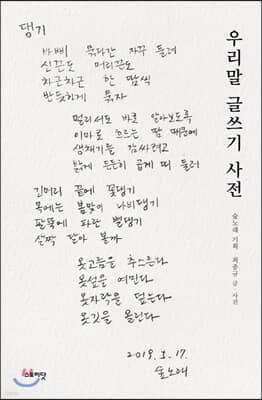 우리말 글쓰기 사전
숲노래 기획, 최종규 글·사진
댕기
바삐 묶다간 자꾸 틀려
신끈도 머리끈도
차근차근 한 땀씩
반듯하게 묶자
멀리서도 바로 알아보도록
이마로 흐르는 땀 때문에
생채기를 감싸려고
밝게 든든히 곱게 띠 둘러
긴머리 끝에 꽃댕기
목에는 봄맞이 나비댕기
팔뚝에 파란 별댕기
살짝 달아 볼까
옷고름을 추스른다
옷섶을 여민다
옷자락을 덮는다
옷깃을 올린다
2019.5.17.
숲노래
스토리닷